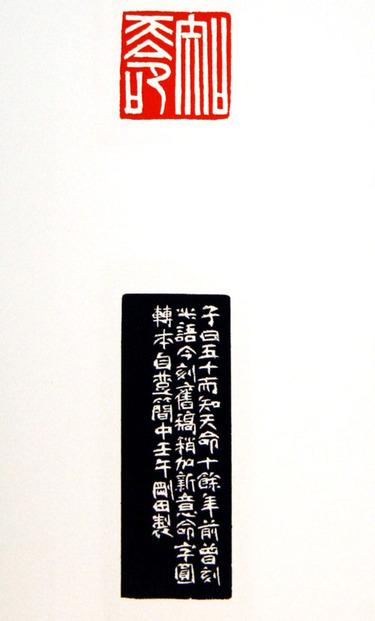 知天命
子曰五十而知天命十餘年前曾刻
此語今刻舊稿稍加新意命字圓
轉本自楚簡中壬午剛田製